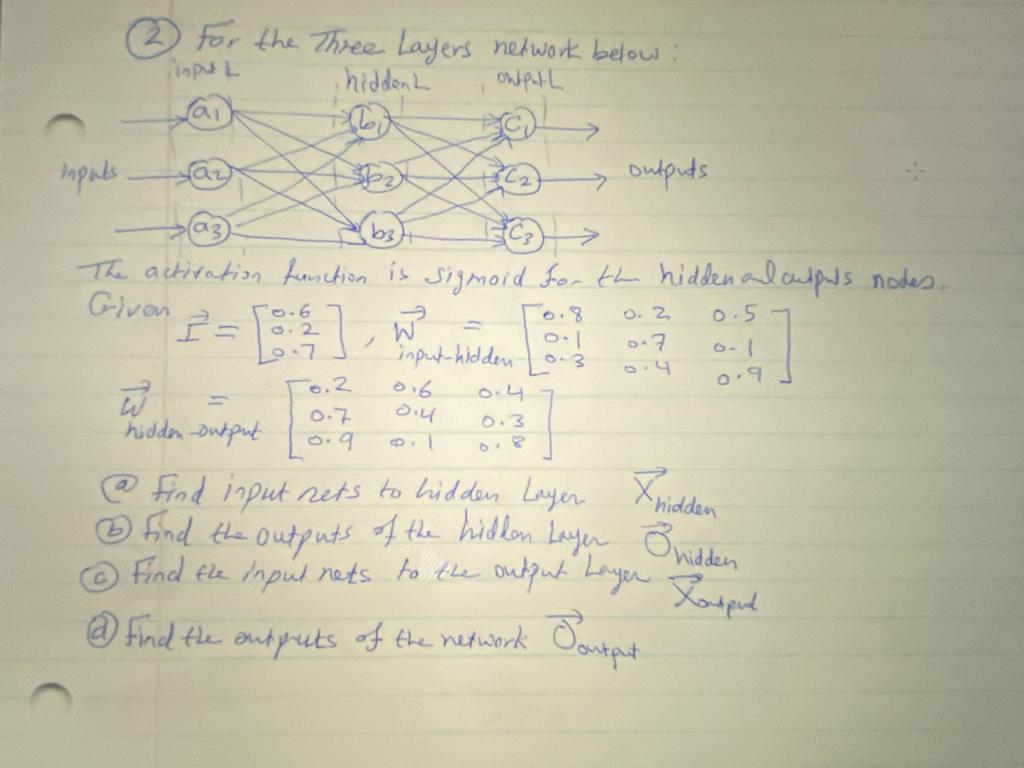 ② For the Three Layers network below:
input L hidden L output L
a1 b1 c1
inputs a2 b2 c2 outputs
a3 b3 c3
The activation function is sigmoid for the hidden and outputs nodes.
Given I = [0.6 0.2 0.7], W input-hidden = [0.8 0.2 0.5
0.1 0.7 0.1
0.3 0.4 0.9]
W hidden-output = [0.2 0.6 0.4
0.7 0.4 0.3
0.9 0.1 0.8]
ⓐ Find input nets to hidden Layer X hidden
ⓑ Find the outputs of the hidden Layer O hidden
ⓒ Find the input nets to the output Layer X output
ⓓ Find the outputs of the network O output